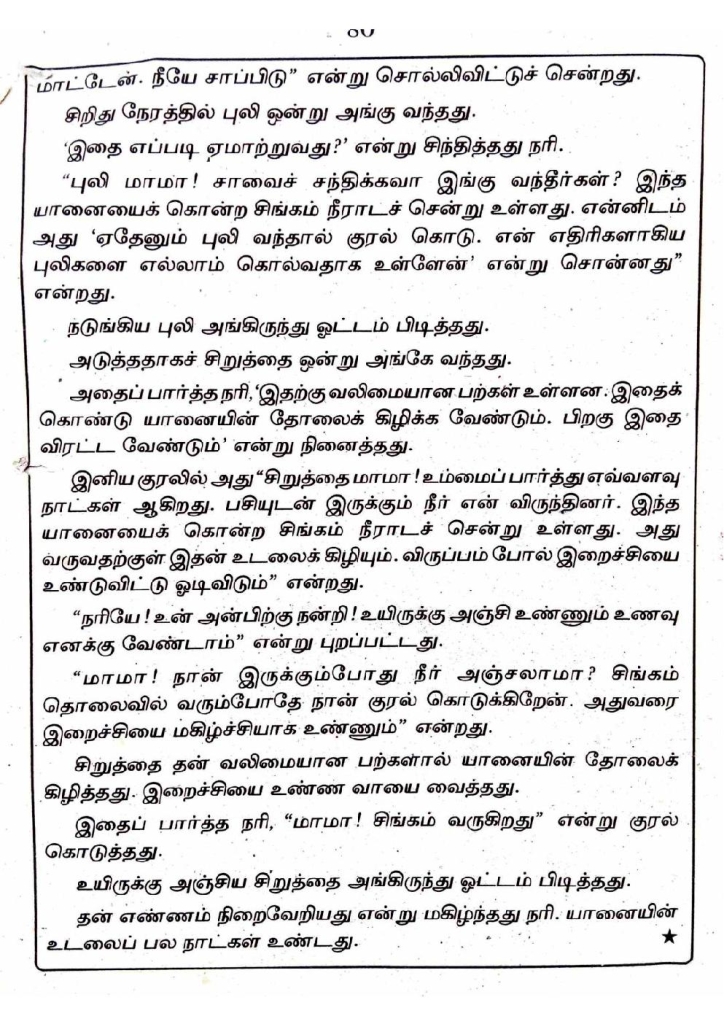 80
மாட்டேன். நீயே சாப்பிடு” என்று சொல்லிவிட்டுச் சென்றது.
சிறிது நேரத்தில் புலி ஒன்று அங்கு வந்தது.
‘இதை எப்படி ஏமாற்றுவது?’ என்று சிந்தித்தது நரி.
“புலி மாமா! சாவைச் சந்திக்கவா இங்கு வந்தீர்கள்? இந்த
யானையைக் கொன்ற சிங்கம் நீராடச் சென்று உள்ளது. என்னிடம்
அது ‘ஏதேனும் புலி வந்தால் குரல் கொடு. என் எதிரிகளாகிய
புலிகளை எல்லாம் கொல்வதாக உள்ளேன்’ என்று சொன்னது”
என்றது.
நடுங்கிய புலி அங்கிருந்து ஓட்டம் பிடித்தது.
அடுத்ததாகச் சிறுத்தை ஒன்று அங்கே வந்தது.
அதைப் பார்த்த நரி, ‘இதற்கு வலிமையான பற்கள் உள்ளன. இதைக்
கொண்டு யானையின் தோலைக் கிழிக்க வேண்டும். பிறகு இதை
விரட்ட வேண்டும்’ என்று நினைத்தது.
இனிய குரலில் அது “சிறுத்தை மாமா! உம்மைப் பார்த்து எவ்வளவு
நாட்கள் ஆகிறது. பசியுடன் இருக்கும் நீர் என் விருந்தினர். இந்த
யானையைக் கொன்ற சிங்கம் நீராடச் சென்று உள்ளது. அது
வருவதற்குள் இதன் உடலைக் கிழியும். விருப்பம் போல் இறைச்சியை
உண்டுவிட்டு ஓடிவிடும்” என்றது.
“நரியே! உன் அன்பிற்கு நன்றி! உயிருக்கு அஞ்சி உண்ணும் உணவு
எனக்கு வேண்டாம்” என்று புறப்பட்டது.
“மாமா! நான் இருக்கும்போது நீர் அஞ்சலாமா? சிங்கம்
தொலைவில் வரும்போதே நான் குரல் கொடுக்கிறேன். அதுவரை
இறைச்சியை மகிழ்ச்சியாக உண்ணும்” என்றது.
சிறுத்தை தன் வலிமையான பற்களால் யானையின் தோலைக்
கிழித்தது. இறைச்சியை உண்ண வாயை வைத்தது.
இதைப் பார்த்த நரி, “மாமா! சிங்கம் வருகிறது” என்று குரல்
கொடுத்தது.
உயிருக்கு அஞ்சிய சிறுத்தை அங்கிருந்து ஓட்டம் பிடித்தது.
தன் எண்ணம் நிறைவேறியது என்று மகிழ்ந்தது நரி. யானையின்
உடலைப் பல நாட்கள் உண்டது. ★